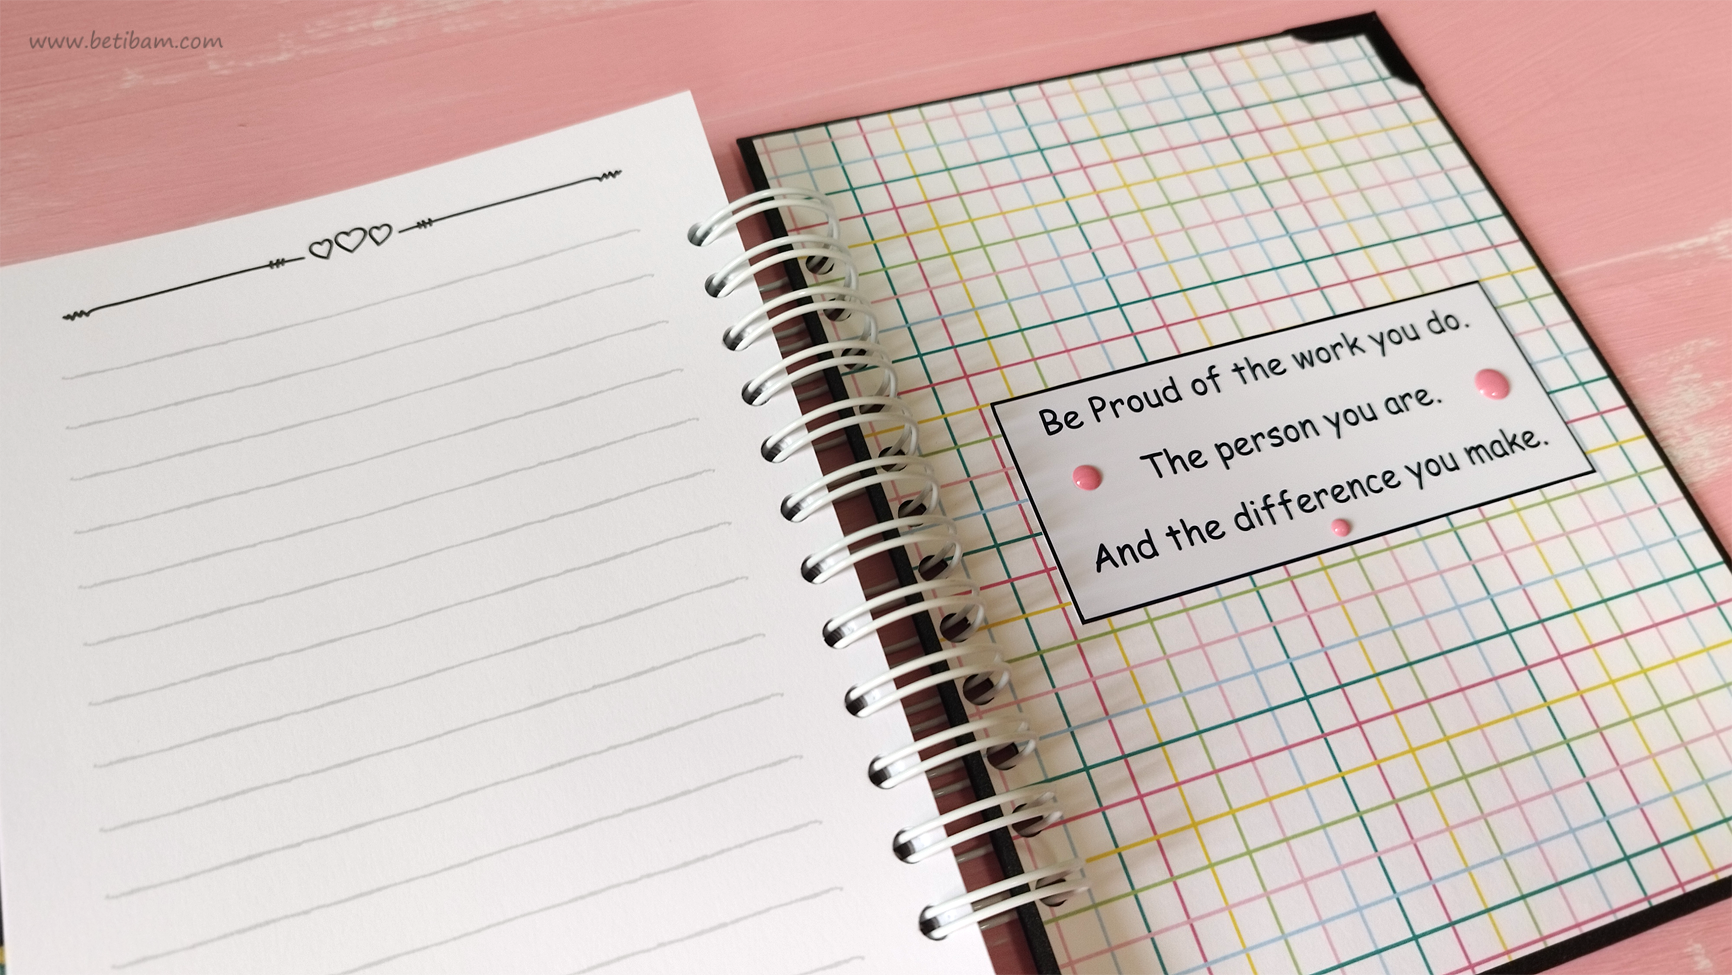 www.betibam.com
Be Proud of the work you do.
The person you are.
And the difference you make.